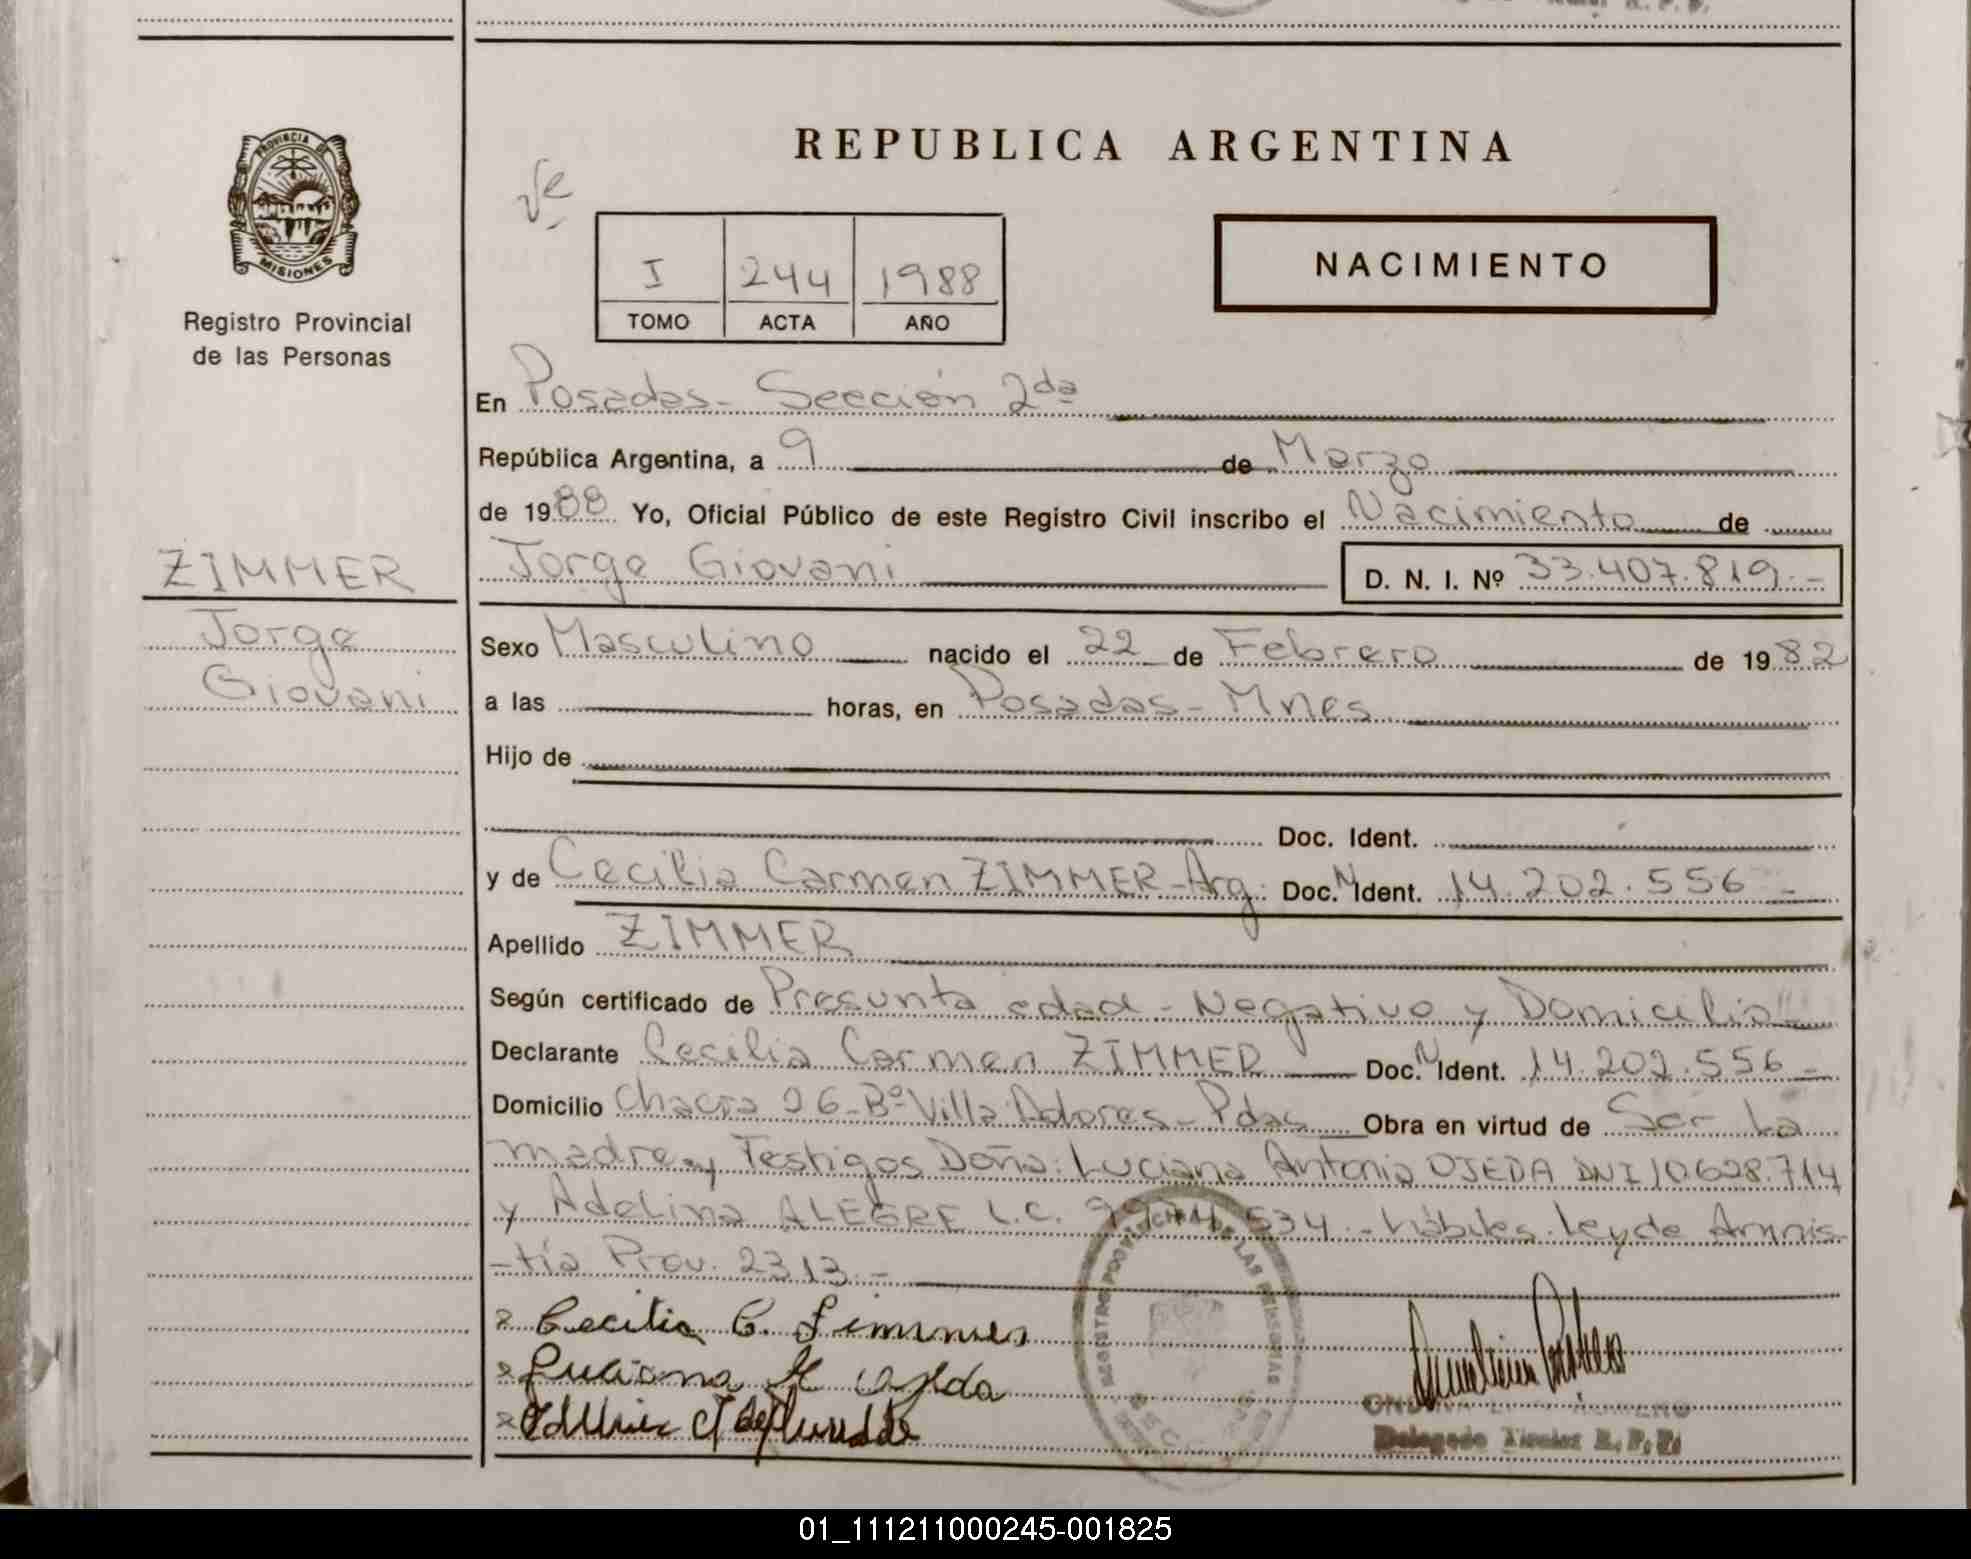 REPUBLICA ARGENTINA
PROVINCIA DE
MISIONES
Registro Provincial
de las Personas
I 244 1988
TOMO ACTA AÑO
NACIMIENTO
En Posadas - Sección 2da
República Argentina, a 9 de Marzo
de 1988 Yo, Oficial Público de este Registro Civil inscribo el Nacimiento de
Jorge Giovani D. N. I. Nº 33.407.819.-
ZIMMER
Jorge
Giovani
Sexo Masculino nacido el 22 de Febrero de 1982
a las horas, en Posadas - Mnes
Hijo de
Doc. Ident.
y de Cecilia Carmen ZIMMER - Arg. Doc. N Ident. 14.202.556 -
Apellido ZIMMER
Según certificado de Presunta edad - Negativo y Domicilio
Declarante Cecilia Carmen ZIMMER Doc. N Ident. 14.202.556 -
Domicilio Chacra 96 - Bº Villa Dolores - Pdas Obra en virtud de Ser La
madre y Testigos Doña: Luciana Antonia OJEDA DNI 10.628.714
y Adelina ALEGRE L.C. 534 - hábiles. Ley de Amnis
-tía Prov. 2313 -
Cecilia C. Zimmer
Luciana A Ojeda
REGISTRO PROVINCIAL DE LAS PERSONAS
Delegado Titular R. P. P.
01_111211000245-001825